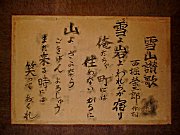 雪山讃歌
西堀栄三郎 作詞
雪よ岩よ われらが宿り
俺たちゃ 町には
住めないからに
山よ さようなら
ごきげんよろしゅう
また来る時にも
笑っておくれ